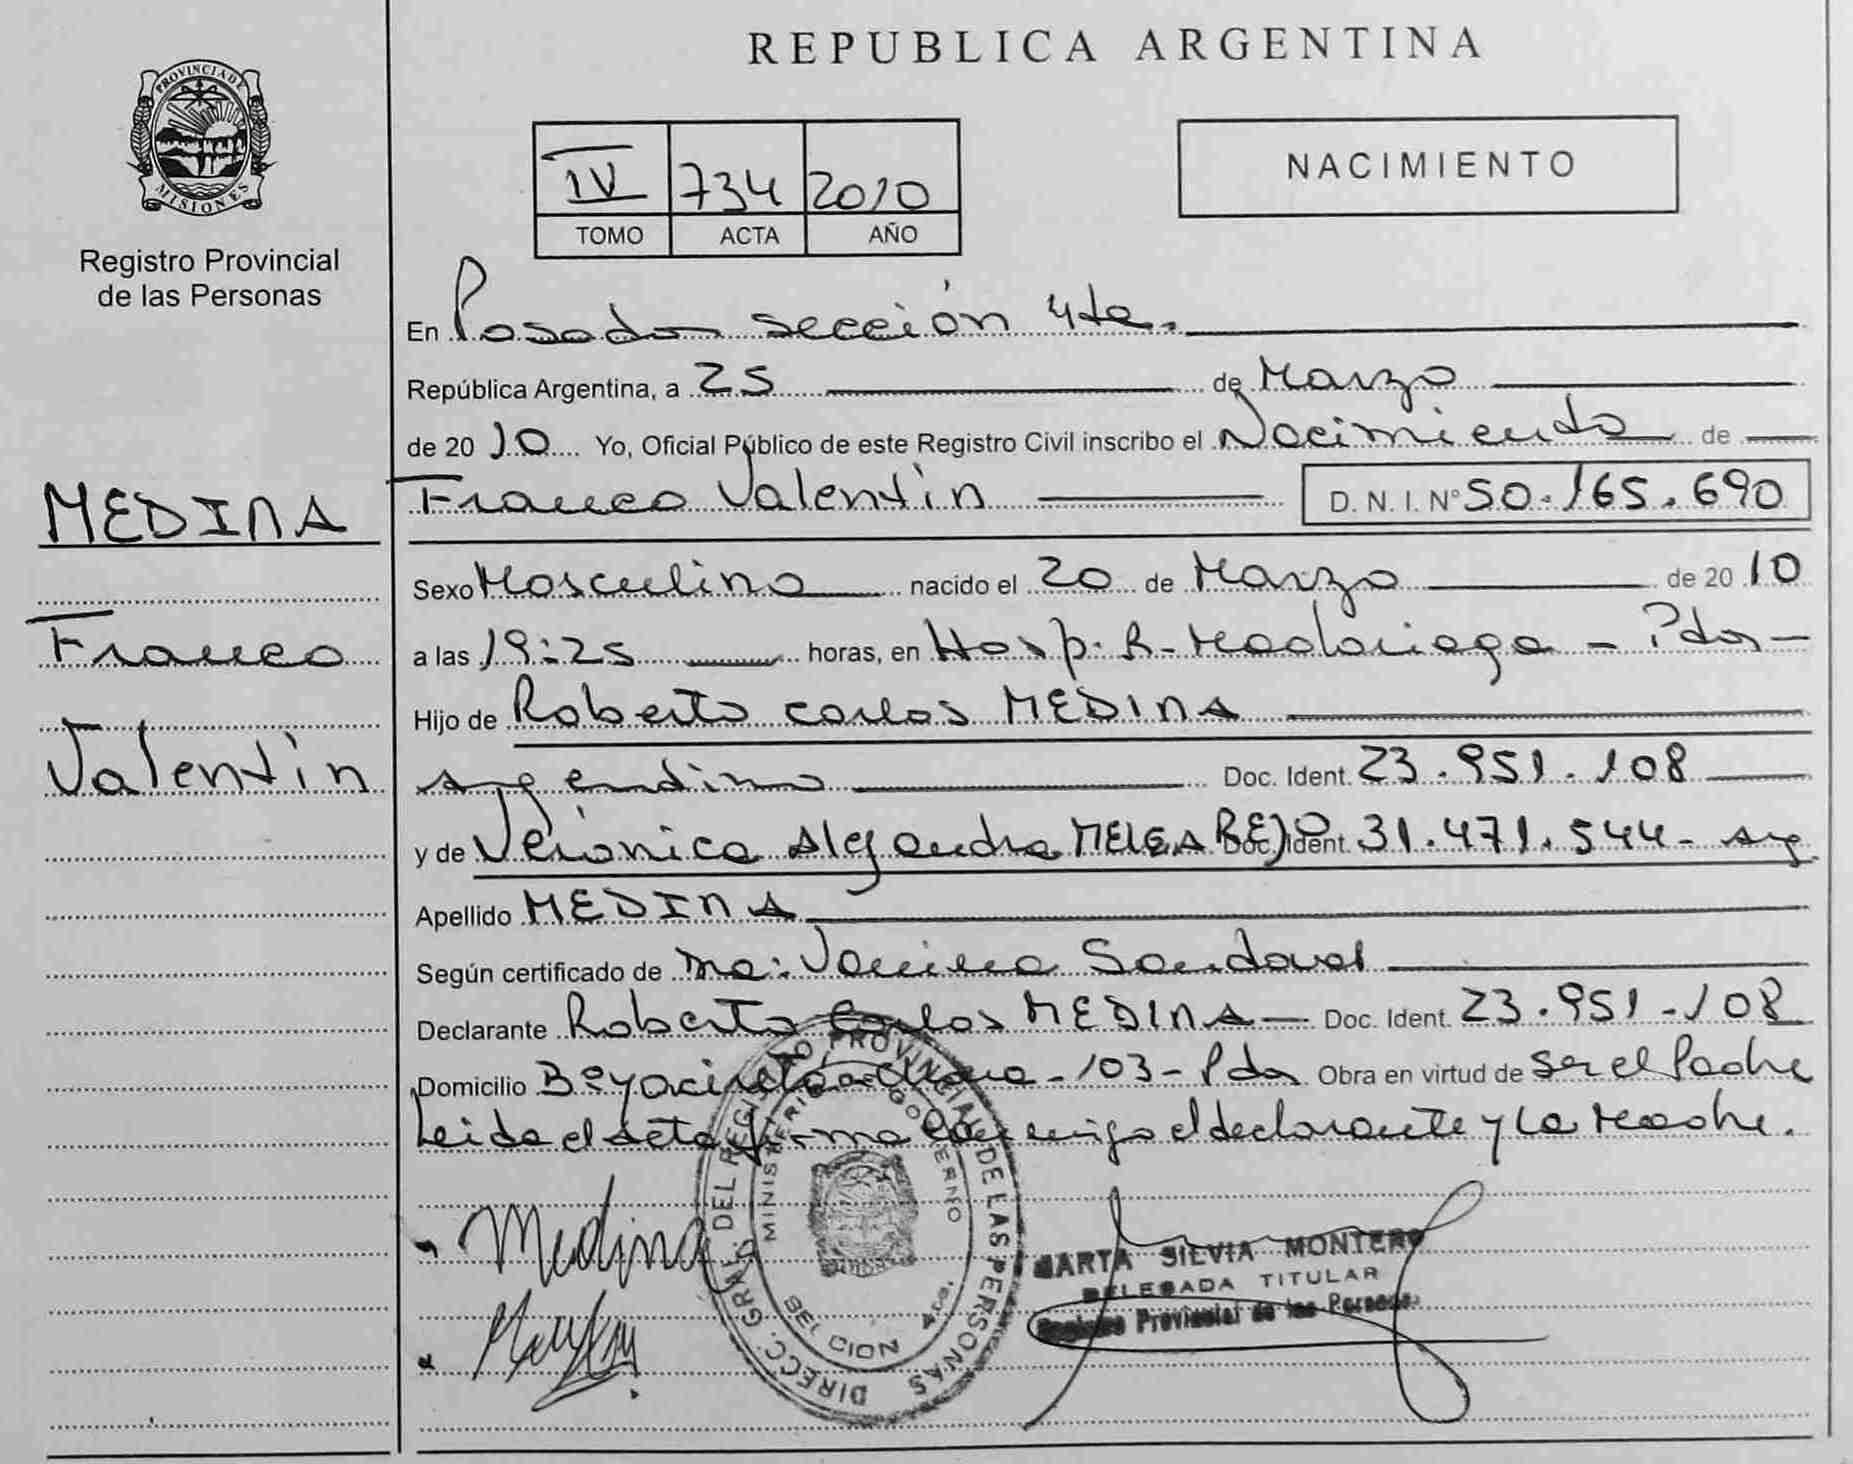 REPUBLICA ARGENTINA
PROVINCIA DE
MISIONES
Registro Provincial
de las Personas
IV 734 2010
TOMO ACTA AÑO
NACIMIENTO
En Posadas sección 4ta.
República Argentina, a 25 de Marzo
de 2010 Yo, Oficial Público de este Registro Civil inscribo el Nacimiento de
MEDINA
Franco
Valentín
Franco Valentín D.N.I. Nº 50.165.690
Sexo Masculino nacido el 20 de Marzo de 2010
a las 19:25 horas, en Hosp. R. Madariaga - Pdas -
Hijo de Roberto Carlos MEDINA
argentino Doc. Ident. 23.951.108
y de Verónica Alejandra MELGAREJO Doc. Ident. 31.471.544 - arg.
Apellido MEDINA
Según certificado de Ma: Sandoval
Declarante Roberto Carlos MEDINA - Doc. Ident. 23.951.108
Domicilio Bº Yacireta - 103 - Pdas Obra en virtud de ser el Padre
Leida el acta firma conmigo el declarante y la Madre.
DIRECC. GRAL. DEL REGISTRO PROVINCIAL DE LAS PERSONAS
MINISTERIO DE GOBIERNO
Medina
MARTA SILVIA MONTERO
DELEGADA TITULAR
Registro Provincial de las Personas